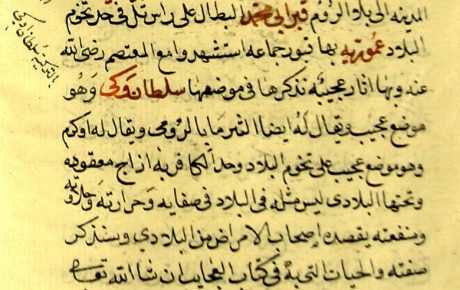 المدينه الى بلاد الروم قبر ابي محمد البطال على راس تل في حد تخوم
البلاد عموريه بها قبور جماعه استشهدوا مع المعتصم رضي الله
عنه وبها اثار عجيبه نذكرها في موضعها سلطان وكي وهو
موضع عجيب ويقال له ايضا الثرما بالرومي ويقال له اوكرم
وهو موضع عجيب على تخوم البلاد وحد الكافر به ازاج معقوده
وتحتها البلادي ليس مثله في البلاد في صفايه وحرارته وحلاوته
ومنفعته يقصده اصحاب الامراض من البلادي وسنذكر
صفته والحيات التي به في كتاب العجايب ان شا الله تعالى
بالتركيه سلطان